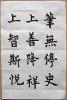 筆無停史
上善降祥
上智斯悦